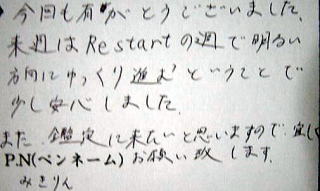 今回も有がとうございました。
来週はRestartの週で明るい
方向にゆっくり進むということで
少し安心しました。
また、鑑定に来たいと思いますので、宜しく
P.N(ペンネーム) お願い致します。
みきりん